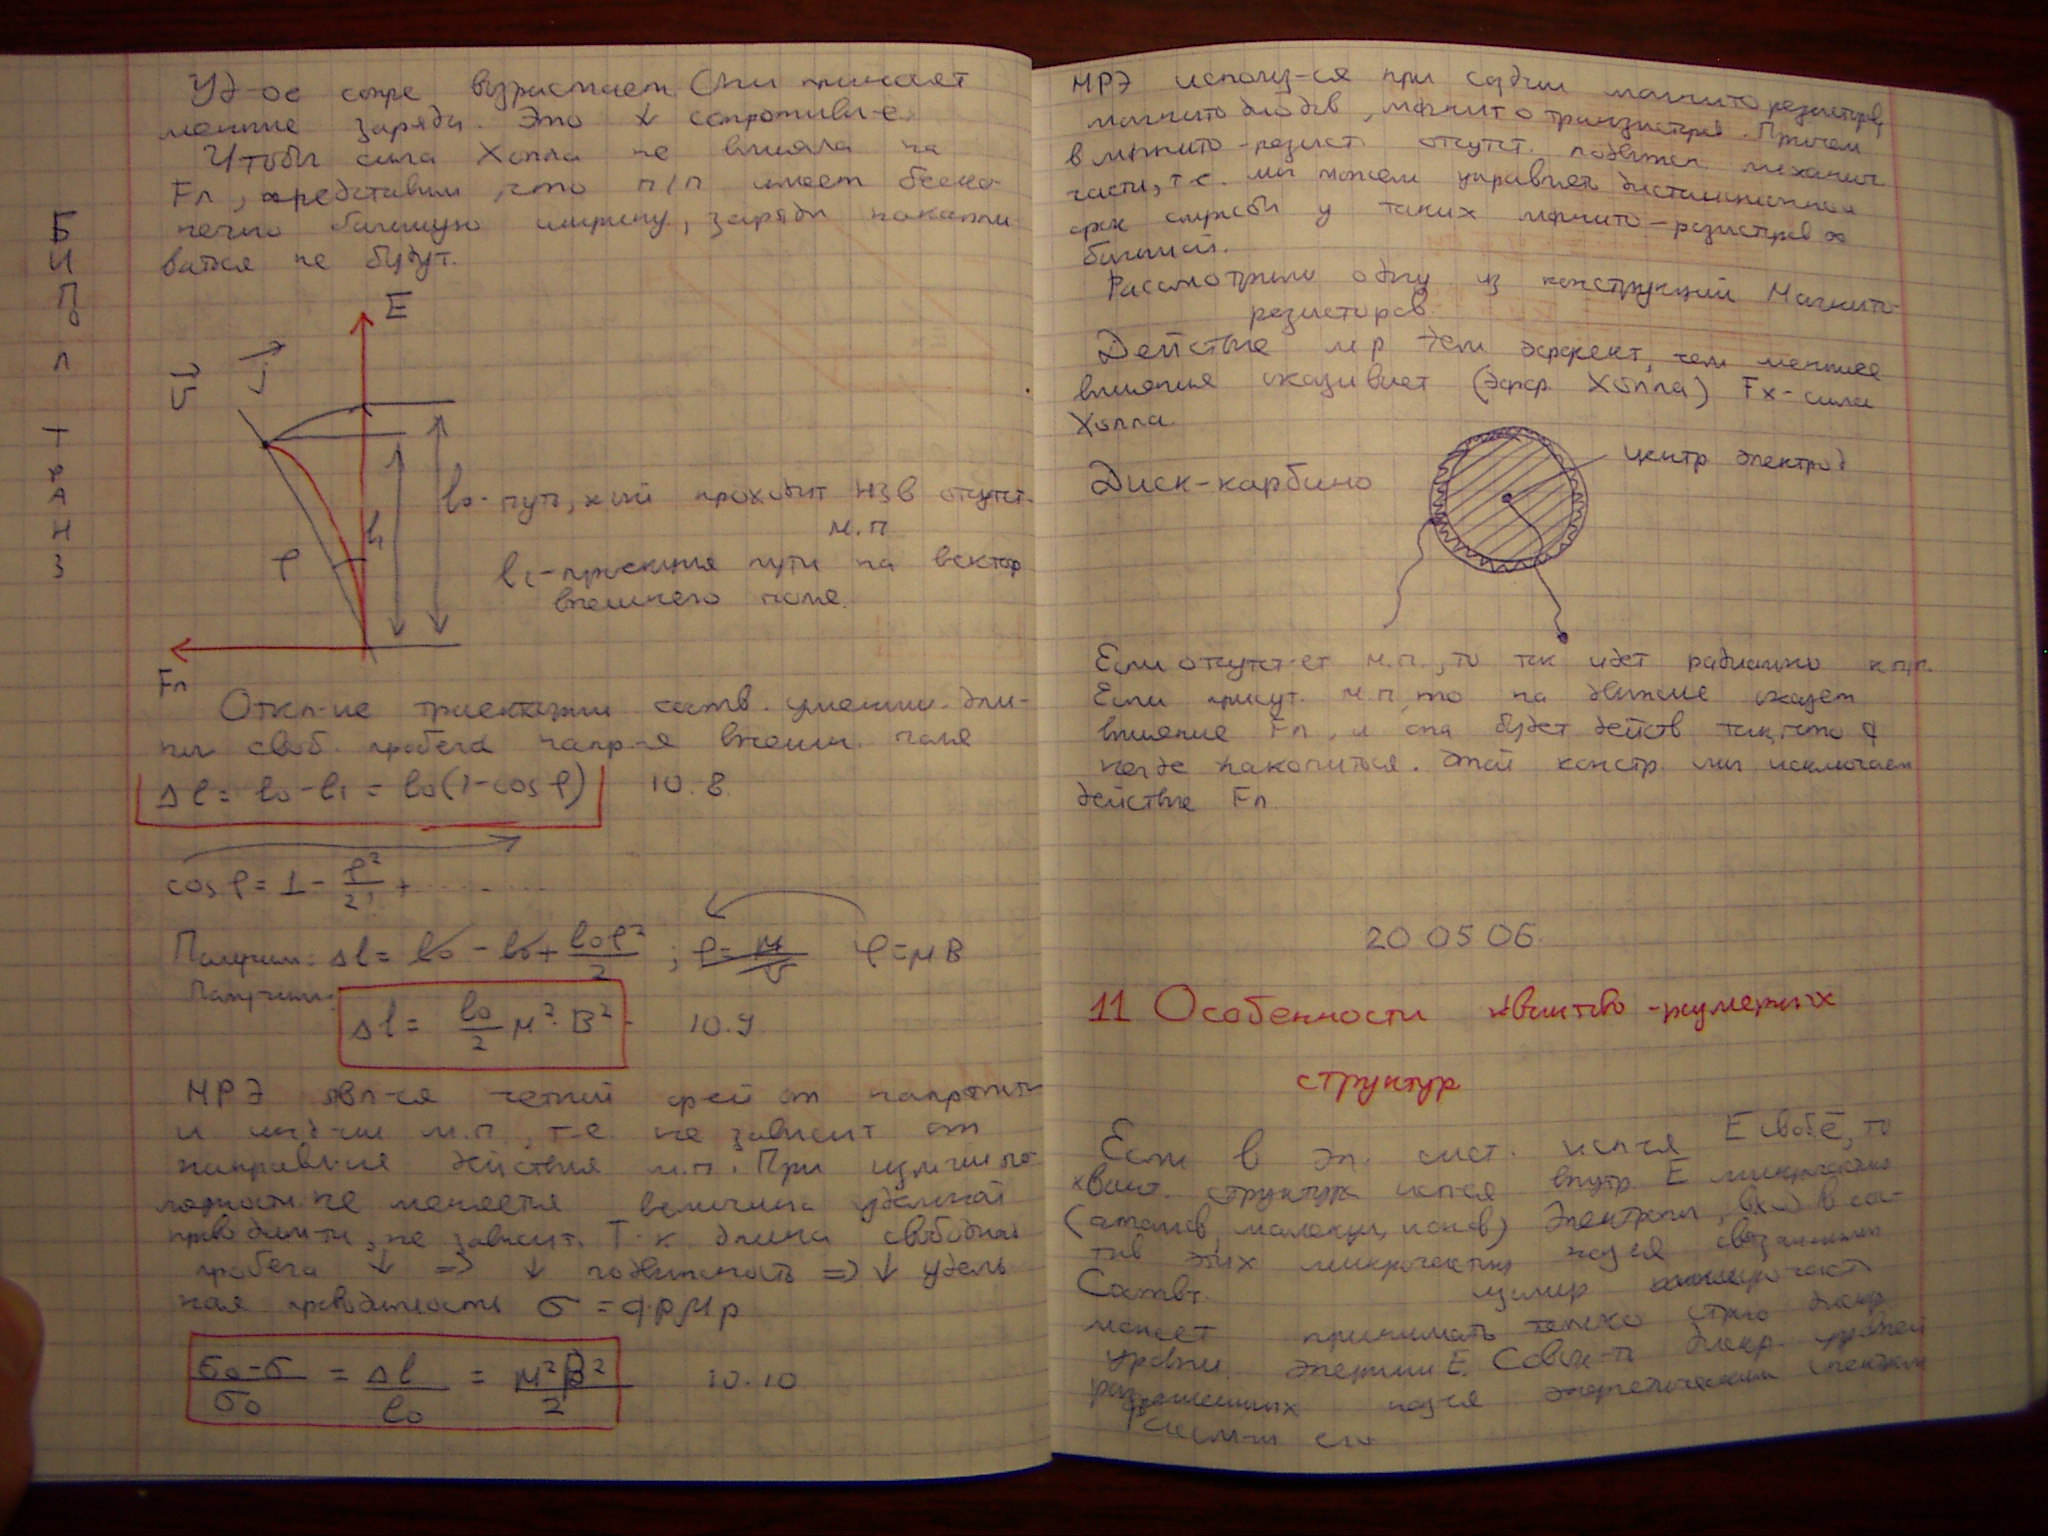 Уд-ое сопре возрастает. Они
заряды. Это х сопротивл-е.
Чтобы сила Холла не влияла на
Fл, представим, что п/п имеет беско-
нечно большую ширину, заряды накапли-
ваться не будут.
Б
И
П
О
Л
Т
Р
А
Н
З
E
v
j
l0 - путь, к-ый проходит НЗ в отсутст.
м.п
l1
φ
l1 - проекция пути на вектор
внешнего поля.
Fл
Откл-ие траектории соотв. уменьш. дли-
ны своб. пробега напр-я внешн. поля
Δl = l0 - l1 = l0(1-cos φ) 10.8
cos φ = 1 - φ²/2! + ........
Получим: Δl = l0 - l0 + l0φ²/2 ; φ = μ/v φ=μB
Получим:
Δl = l0/2 μ²·B² 10.9
МРЭ явл-ся четной ф-ей от
м.п, т.е. не зависит от
направл-ия действия м.п. При
не меняется величина удельной
проводим-ти, не зависит. Т.к. длина свободной
пробега ↓ => ↓ подвижность => ↓ удель
ная проводимость σ = qpμp
(σ0-σ)/σ0 = Δl/l0 = μ²B²/2 10.10
МРЭ использ-ся при создании магниторезисторов,
магнитодиодов, магнитотранзисторов. Причем
в магнито-резист. отсутст. подвижн. механич
части, т.е. мы можем управлять дистанционно
срок службы у таких магнито-резисторов ∞
большой.
Рассмотрим одну из конструкций Магнито-
резисторов.
Действие м р тем эффект, чем меньшее
влияния оказывает (эфф Холла) Fx - сила
Холла
Диск-карбино
центр электрод
Если отсутст-ет м.п., то ток идет радиально к п/п.
Если присут. м.п то на движние окажет
влияние Fл, и она будет действ так, что q
негде накопиться. Этой констр. мы исключаем
действие Fл.
20 05 06.
11 Особенности квантово-размерных
структур
Если в эл. сист. исп-ся E своб ē, то
квант. структурах исп-ся внутр. E микрочастиц
(атомов, молекул, ионов) Электроны, вход в сос-
тав этих микрочастиц наз-ся связанными
Соотвт.
может принимать только строго дискр
уровни энергии E. Совок-ть дискр. уровней
разрешенных наз-ся энергетическим спектром